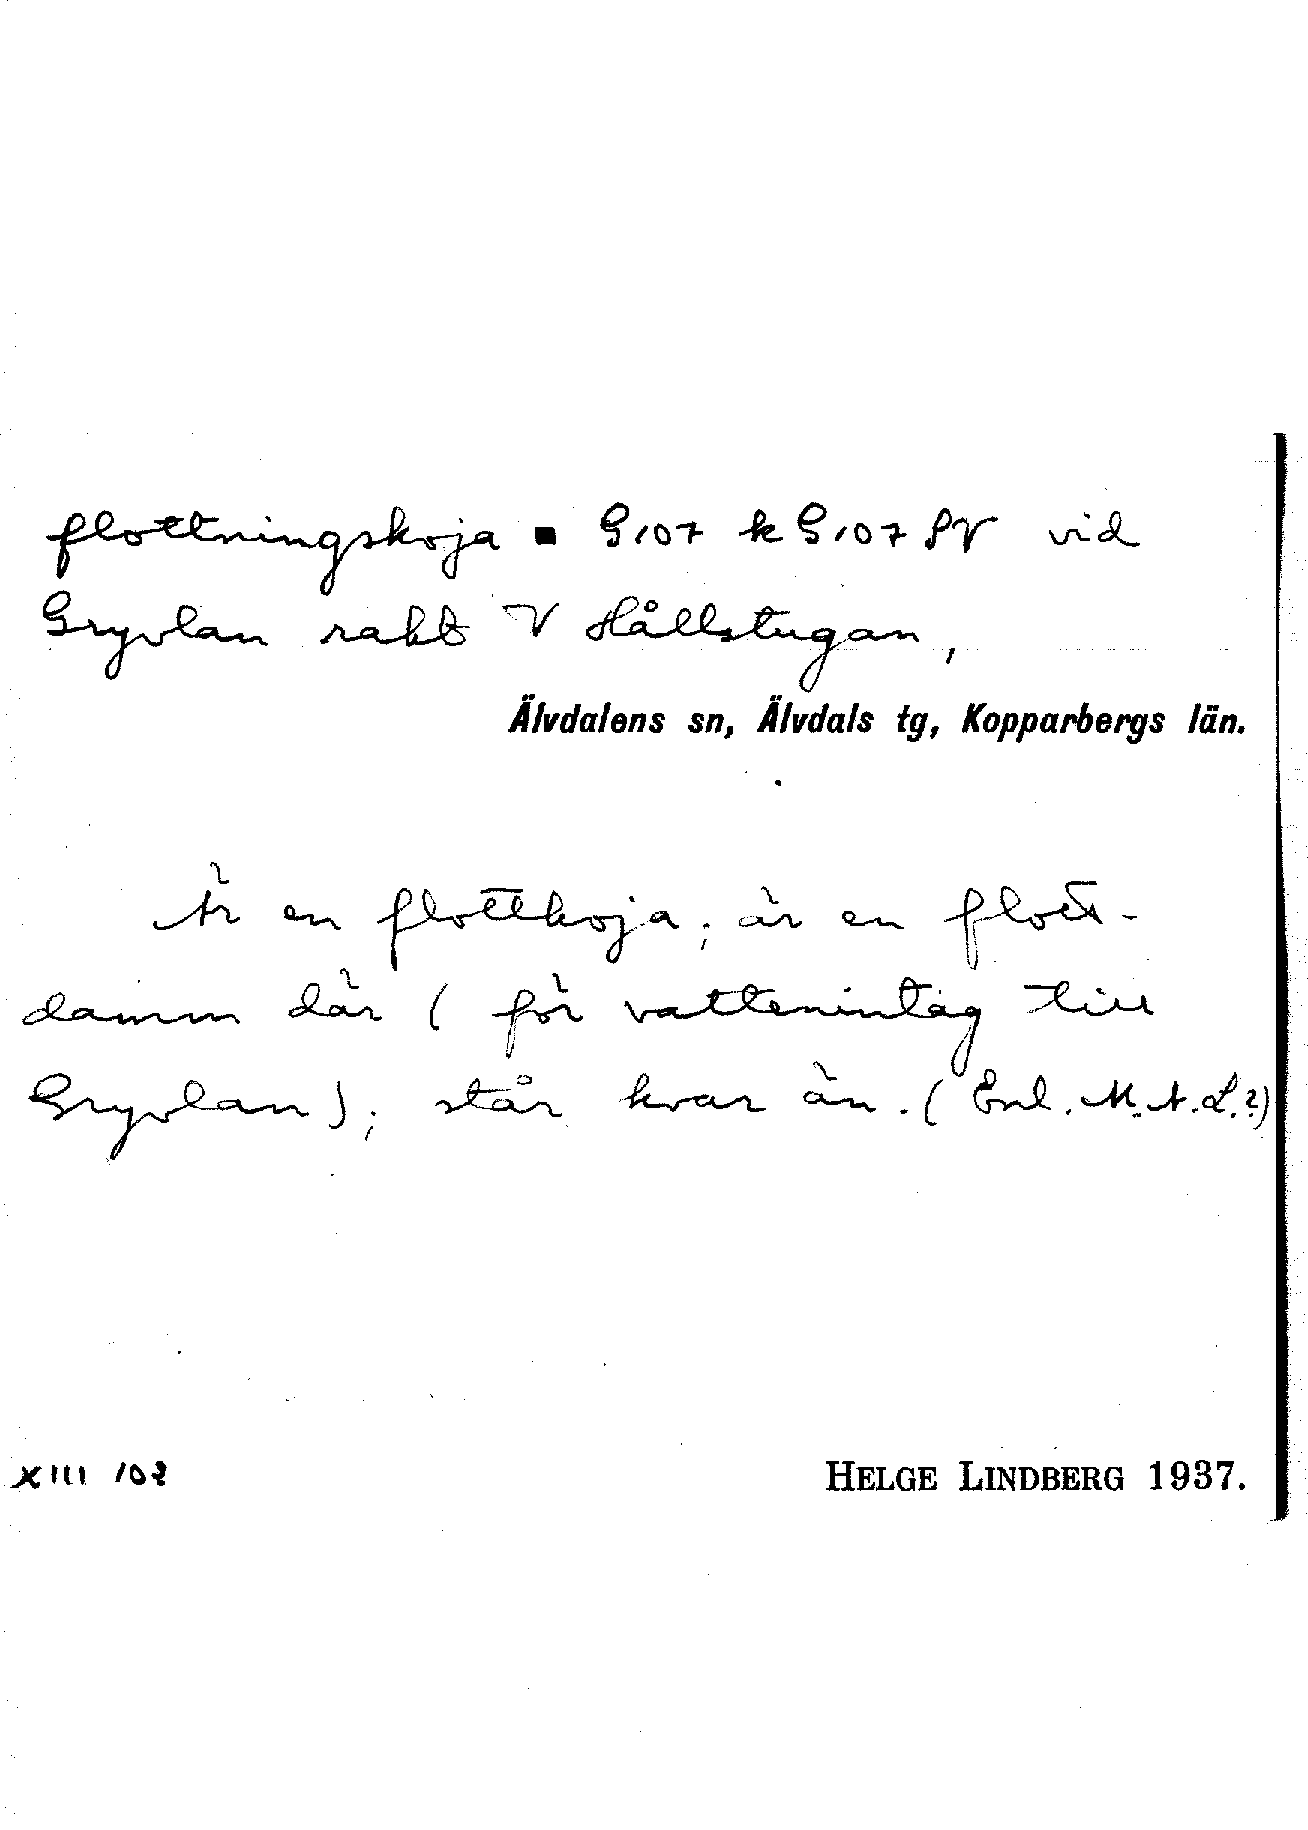 flottningskoja ■ G107 k G107 SV vid
Gryvlan rakt V Hållstugan,
Älvdalens sn, Älvdals tg, Kopparbergs län.
Är en flottkoja; är en flott-
damm där (för vattenintag till
Gryvlan); står kvar än. (Enl. M.A.L.?)
XIII 102
HELGE LINDBERG 1937.